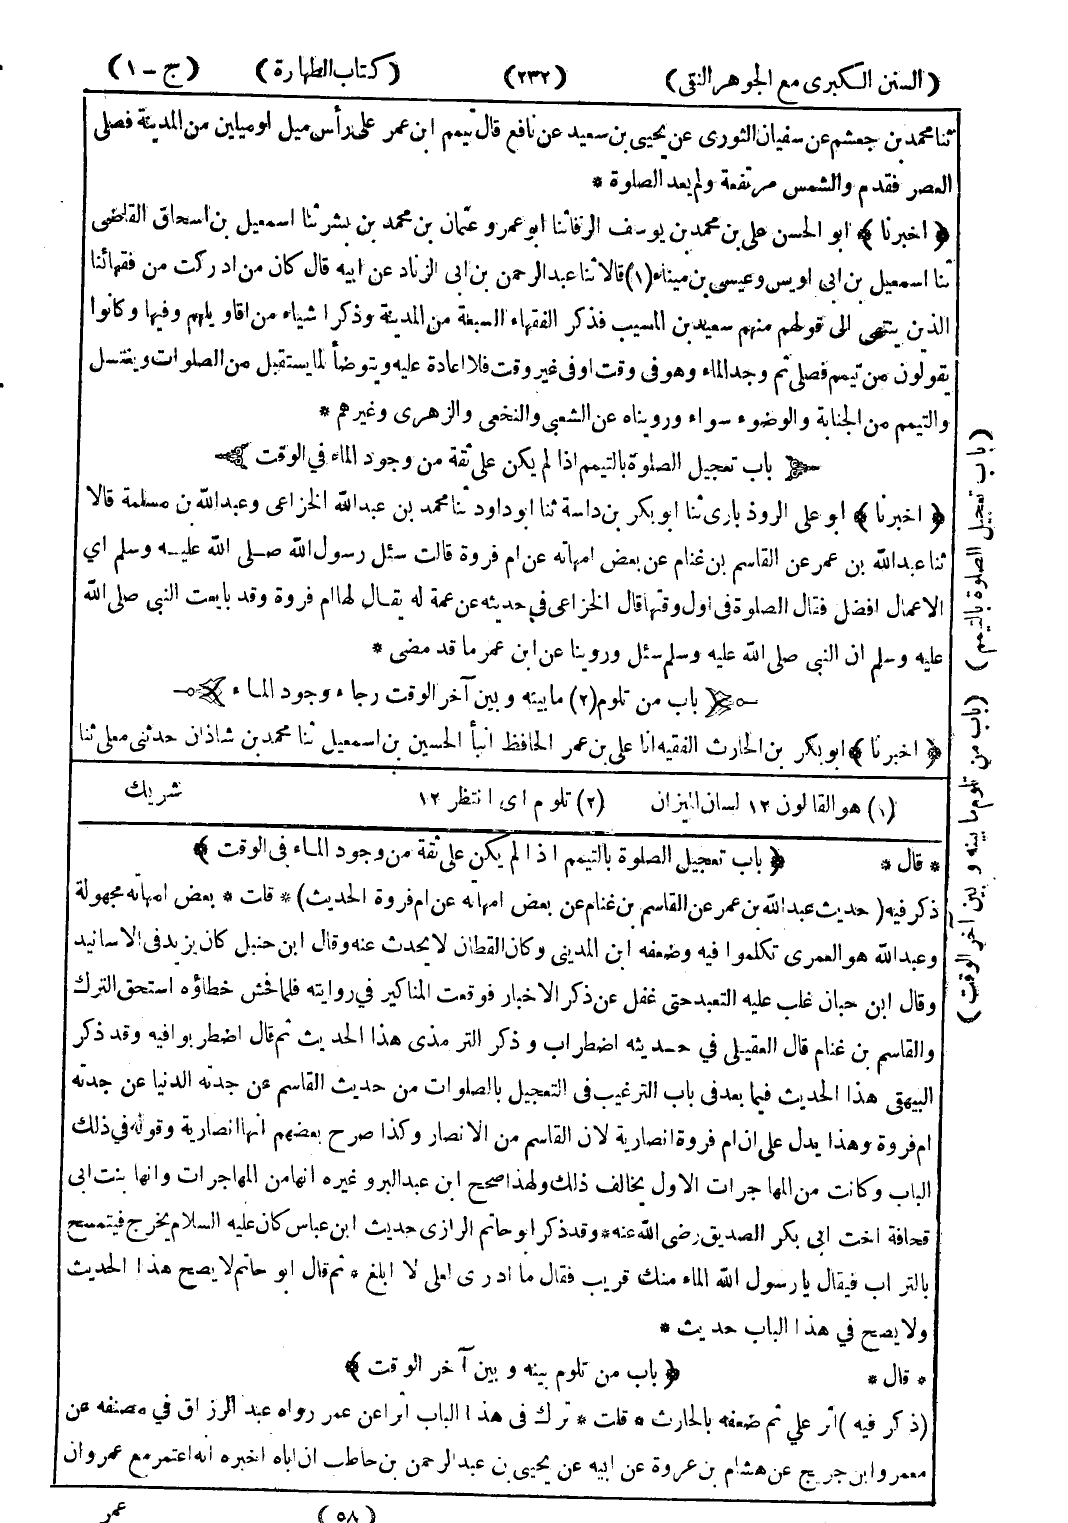 (السنن الكبرى مع الجوهر النقى) (٢٣٢) (كتاب الطهارة) (ج - ١)
ثنا محمد بن جعشم عن سفيان الثورى عن يحيى بن سعيد عن نافع قال تيمم ابن عمر على رأس ميل او ميلين من المدينة فصلى
العصر فقدم والشمس مرتفعة ولم يعد الصلوة *
﴿ اخبرنا ﴾ ابو الحسن على بن محمد بن يوسف الرفا ثنا ابو عمرو عثمان بن محمد بن بشر ثنا اسمعيل بن اسحاق القاضى
ثنا اسمعيل بن ابى اويس وعيسى بن ميناء (١) قالا ثنا عبد الرحمن بن ابى الزناد عن ابيه قال كان من ادركت من فقهائنا
الذين ينتهى الى قولهم منهم سعيد بن المسيب فذكر الفقهاء السبعة من المدينة وذكر اشياء من اقاويلهم وفيها وكانوا
يقولون من تيمم فصلى ثم وجد الماء وهو فى وقت او فى غير وقت فلا اعادة عليه ويتوضأ لما يستقبل من الصلوات ويغتسل
والتيمم من الجنابة والوضوء سواء ورويناه عن الشعبى والنخعى والزهرى وغيرهم *
باب تعجيل الصلوة بالتيمم اذا لم يكن على ثقة من وجود الماء في الوقت
﴿ اخبرنا ﴾ ابو على الروذبارى ثنا ابو بكر بن داسة ثنا ابو داود ثنا محمد بن عبد الله الخزاعى وعبد الله بن مسلمة قالا
ثنا عبد الله بن عمر عن القاسم بن غنام عن بعض امهاته عن ام فروة قالت سئل رسول الله صلى الله عليه وسلم اي
الاعمال افضل فقال الصلوة فى اول وقتها قال الخزاعى في حديثه عن عمة له يقال لها ام فروة وقد بايعت النبى صلى الله
عليه وسلم ان النبى صلى الله عليه وسلم سئل وروينا عن ابن عمر ما قد مضى *
باب من تلوم (٢) ما بينه وبين آخر الوقت رجاء وجود الماء
﴿ اخبرنا ﴾ ابو بكر بن الحارث الفقيه انا على بن عمر الحافظ انبأ الحسين بن اسمعيل ثنا محمد بن شاذان حدثنى معلى ثنا
شريك
(١) هو القالون ١٢ لسان الميزان (٢) تلوم اى انتظر ١٢
* قال * ﴿ باب تعجيل الصلوة بالتيمم اذا لم يكن على ثقة من وجود الماء فى الوقت ﴾
ذكر فيه (حديث عبد الله بن عمر عن القاسم بن غنام عن بعض امهاته عن ام فروة الحديث) * قلت * بعض امهاته مجهولة
وعبد الله هو العمرى تكلموا فيه وضعفه ابن المدينى وكان القطان لا يحدث عنه وقال ابن حنبل كان يزيد فى الاسانيد
وقال ابن حبان غلب عليه التعبد حتى غفل عن ذكر الاخبار فوقعت المناكير في روايته فلما فحش خطاؤه استحق الترك
والقاسم بن غنام قال العقيلى في حديثه اضطراب وذكر الترمذى هذا الحديث ثم قال اضطربوا فيه وقد ذكر
البيهقى هذا الحديث فيما بعد فى باب الترغيب فى التعجيل بالصلوات من حديث القاسم عن جدته الدنيا عن جدته
ام فروة وهذا يدل على ان ام فروة انصارية لان القاسم من الانصار وكذا صرح بعضهم انها انصارية وقوله في ذلك
الباب وكانت من المهاجرات الاول يخالف ذلك ولهذا صحح ابن عبد البر وغيره انها من المهاجرات وانها بنت ابى
قحافة اخت ابى بكر الصديق رضى الله عنه * وقد ذكر ابو حاتم الرازى حديث ابن عباس كان عليه السلام يخرج فيتمسح
بالتراب فيقال يا رسول الله الماء منك قريب فقال ما ادرى لعلى لا ابلغ * ثم قال ابو حاتم لا يصح هذا الحديث
ولا يصح في هذا الباب حديث *
* قال * ﴿ باب من تلوم بينه وبين آخر الوقت ﴾
(ذكر فيه) اثر علي ثم ضعفه بالحارث * قلت * ترك فى هذا الباب اثرا عن عمر رواه عبد الرزاق في مصنفه عن
معمر وابن جريج عن هشام بن عروة عن ابيه عن يحيى بن عبد الرحمن بن حاطب ان اباه اخبره انه اعتمر مع عمر وان
عمر
(٥٨)
(باب تعجيل الصلوة بالتيمم) (باب من تلوم ما بينه وبين آخر الوقت)